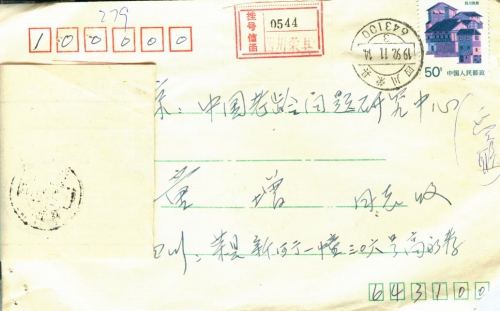 279
100000
挂号信函
0544
四川荣县
643100
3
1992.11.14
四川荣县
50分 中国人民邮政
京:中国老龄问题研究中心
董增 同志收
川:荣县新百下一幢三0六号高
643100